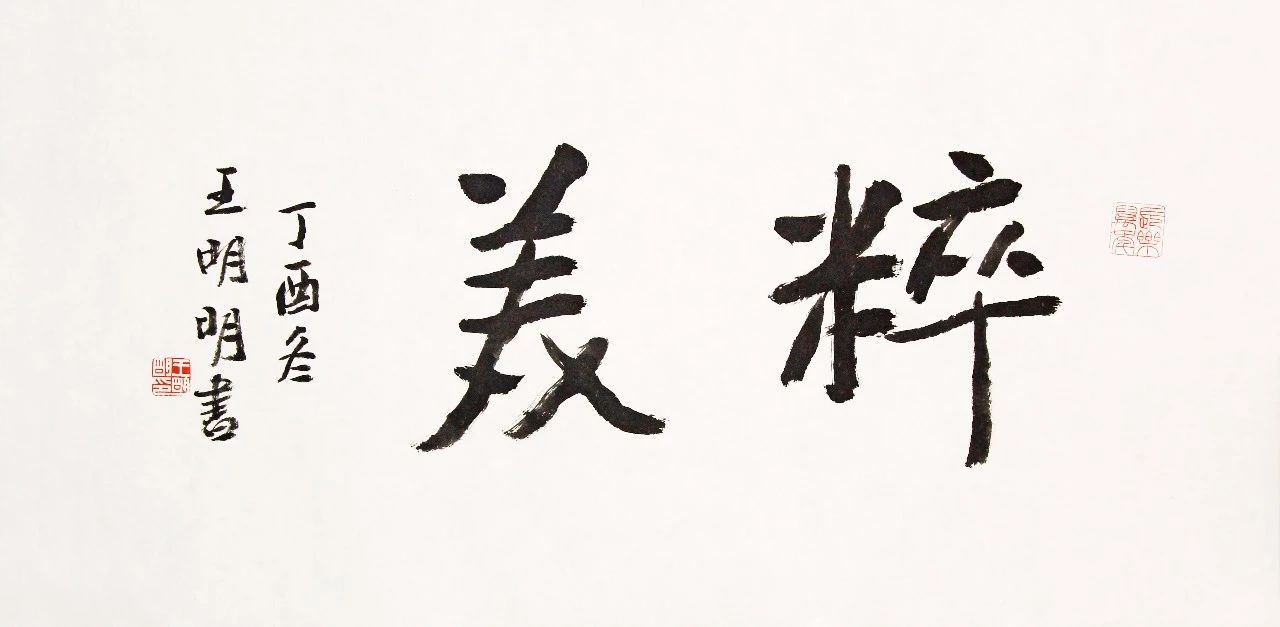 粹美
丁酉冬
王明明書